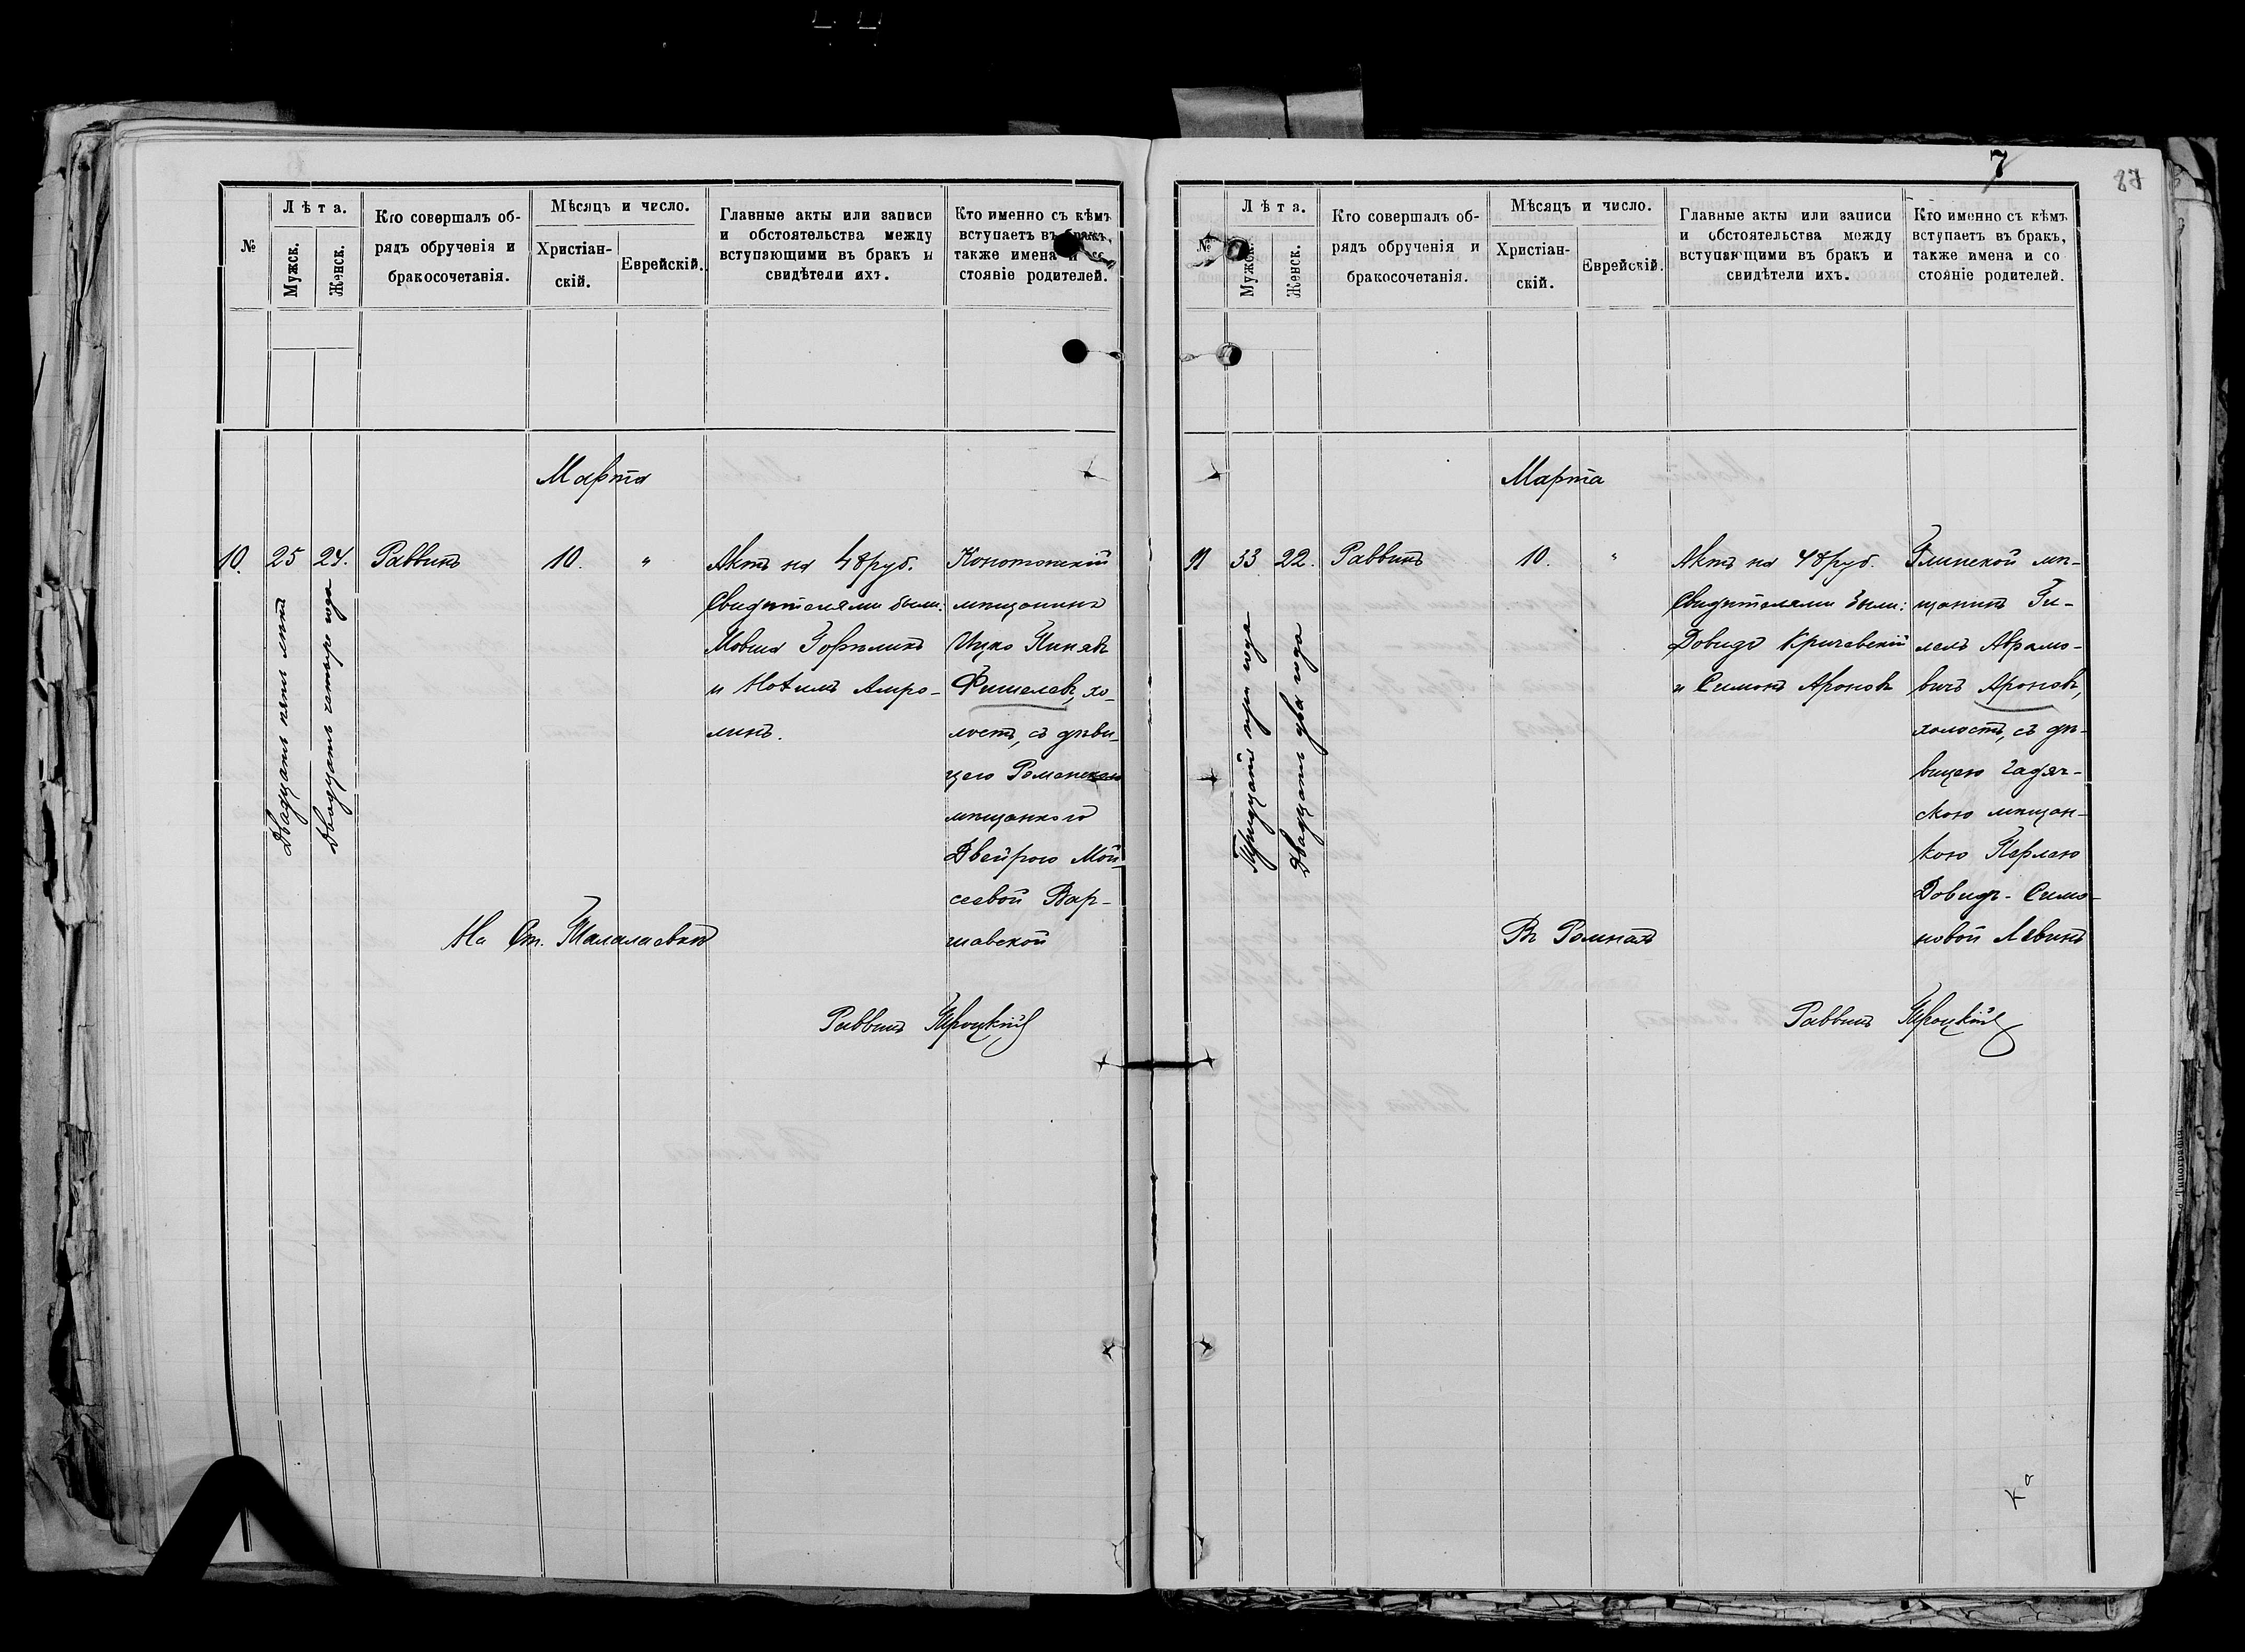 №
Лѣта.
Мужск.
Женск.
Кто совершалъ об-
рядъ обрученія и
бракосочетанія.
Мѣсяцъ и число.
Христіан-
скій.
Еврейскій.
Главные акты или записи
и обстоятельства между
вступающими въ бракъ и
свидѣтели ихъ.
Кто именно съ кѣмъ
вступаетъ въ бракъ,
также имена и со
стояніе родителей.
Марта
10. 25 24. Раввинъ 10. "
Двадцать пять лѣтъ
Двадцать четыре года
Актъ на 48 руб.
Свидѣтелями были:
Мовша
и Нохимъ
линъ.
Конотопскій
мѣщанинъ
Ицко Пинявъ
Фишелевъ, хо-
лостъ, съ дѣви-
цею Роменскою
мѣщанкою
Двейрою Мои-
сеевой Вар-
шавской
На Ст. Талалаевкѣ
Раввинъ Троцкій
7
87
№
Лѣта.
Мужск.
Женск.
Кто совершалъ об-
рядъ обрученія и
бракосочетанія.
Мѣсяцъ и число.
Христіан-
скій.
Еврейскій.
Главные акты или записи
и обстоятельства между
вступающими въ бракъ и
свидѣтели ихъ.
Кто именно съ кѣмъ
вступаетъ въ бракъ,
также имена и со
стояніе родителей.
Марта
11 33 22. Раввинъ 10. "
Тридцать три года
Двадцать два года
Актъ на 48 руб.
Свидѣтелями были:
Довидъ Кричевскій
и Симонъ Ароновъ
Глинской мѣ-
щанинъ Ги-
лель Абрамо-
вичъ Ароновъ,
холостъ, съ дѣ-
вицею Гадяч-
скою мѣщан-
кою Перлею
Довидъ-Симо-
новой Левинъ
Въ Ромнахъ
Раввинъ Троцкій